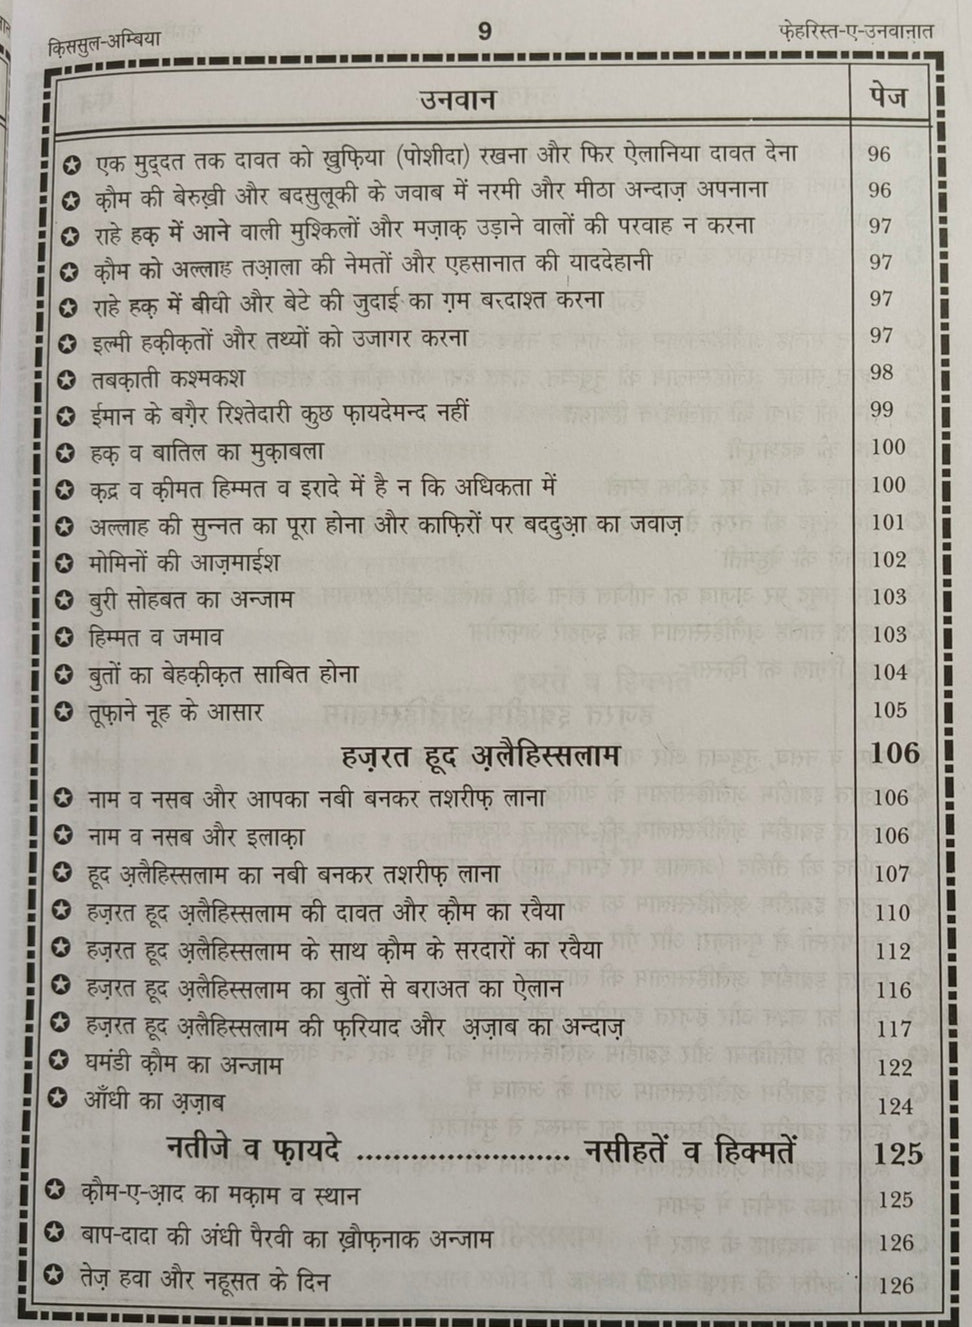 क़िससुल-अम्बिया 9 फ़ेहरिस्त-ए-उनवानात
उनवान पेज
✪ एक मुद्दत तक दावत को ख़ुफ़िया (पोशीदा) रखना और फिर ऐलानिया दावत देना 96
✪ क़ौम की बेरुख़ी और बदसुलूकी के जवाब में नरमी और मीठा अन्दाज़ अपनाना 96
✪ राहे हक़ में आने वाली मुश्किलों और मज़ाक़ उड़ाने वालों की परवाह न करना 97
✪ क़ौम को अल्लाह तआ़ला की नेमतों और एहसानात की याददेहानी 97
✪ राहे हक़ में बीवी और बेटे की जुदाई का ग़म बरदाश्त करना 97
✪ इल्मी हक़ीक़तों और तथ्यों को उजागर करना 97
✪ तबक़ाती कश्मकश 98
✪ ईमान के बग़ैर रिश्तेदारी कुछ फ़ायदेमन्द नहीं 99
✪ हक़ व बातिल का मुक़ाबला 100
✪ क़द्र व क़ीमत हिम्मत व इरादे में है न कि अधिकता में 100
✪ अल्लाह की सुन्नत का पूरा होना और काफ़िरों पर बददुआ़ का जवाज़ 101
✪ मोमिनों की आज़माईश 102
✪ बुरी सोहबत का अन्जाम 103
✪ हिम्मत व जमाव 103
✪ बुतों का बेहक़ीक़त साबित होना 104
✪ तूफ़ाने नूह के आसार 105
हज़रत हूद अ़लैहिस्सलाम 106
✪ नाम व नसब और आपका नबी बनकर तशरीफ़ लाना 106
✪ नाम व नसब और इलाक़ा 106
✪ हूद अ़लैहिस्सलाम का नबी बनकर तशरीफ़ लाना 107
✪ हज़रत हूद अ़लैहिस्सलाम की दावत और क़ौम का रवैया 110
✪ हज़रत हूद अ़लैहिस्सलाम के साथ क़ौम के सरदारों का रवैया 112
✪ हज़रत हूद अ़लैहिस्सलाम का बुतों से बराअत का ऐलान 116
✪ हज़रत हूद अ़लैहिस्सलाम की फ़रियाद और अ़ज़ाब का अन्दाज़ 117
✪ घमंडी क़ौम का अन्जाम 122
✪ आँधी का अ़ज़ाब 124
नतीजे व फ़ायदे ........................ नसीहतें व हिक्मतें 125
✪ क़ौम-ए-आ़द का मक़ाम व स्थान 125
✪ बाप-दादा की अंधी पैरवी का ख़ौफ़नाक अन्जाम 126
✪ तेज़ हवा और नहूसत के दिन 126